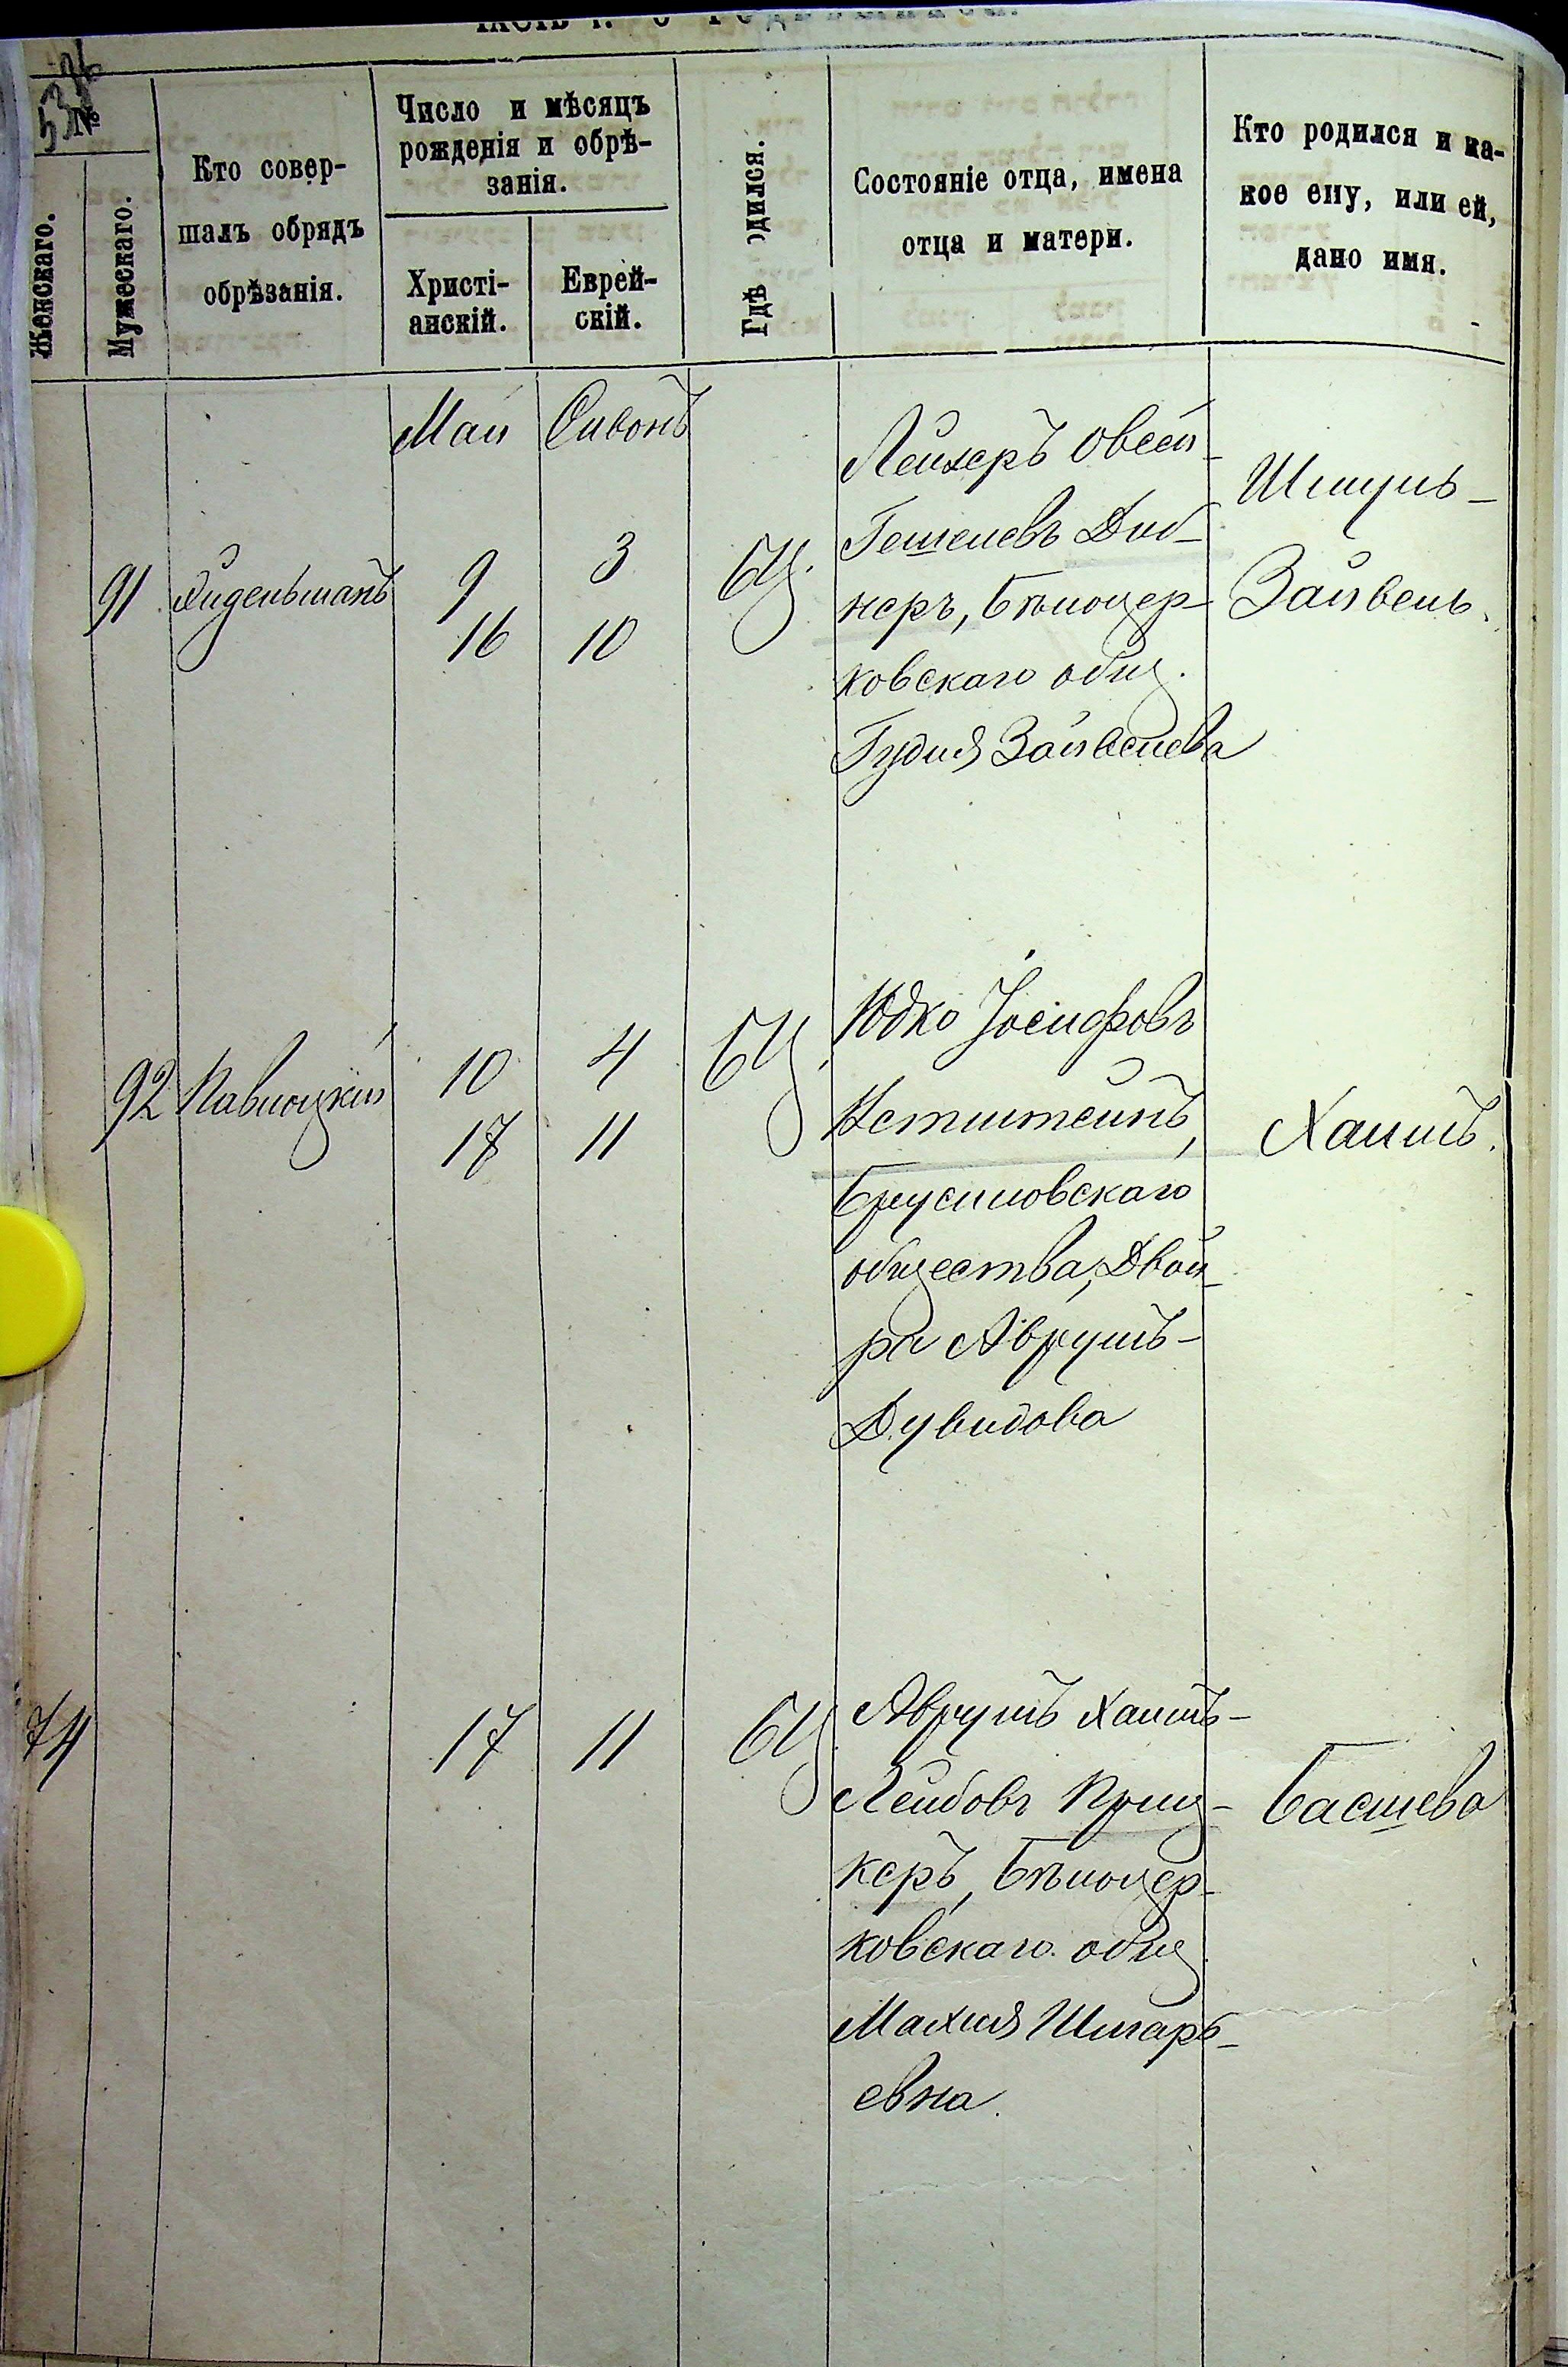 №
Женскаго.
Мужескаго.
Кто совер-
шалъ обрядъ
обрѣзанія.
Число и мѣсяцъ
рожденія и обрѣ-
занія.
Христі-
анскій.
Еврей-
скій.
Гдѣ одился.
Состояніе отца, имена
отца и матери.
Кто родился и ка-
кое ему, или ей,
дано имя.
Май Сивонъ
91 9 3 БЦ.
16 10
Лейзеръ Овсей-
Гешелевъ Дуб-
неръ, Бѣлоцер-
ковскаго общ.
Гудля Зайвелева
Шмуль-
Зайвель.
92 Павлоцкій 10 4 БЦ.
17 11
Юдко Іосифовъ
Истштейнъ,
Брусиловскаго
общества, Двой-
ра Аврумъ-
Дувидова
Хаимъ.
74 17 11 БЦ
Аврумъ Хаимъ-
Лейбовъ Приц-
керъ, Бѣлоцер-
ковскаго общ.
Малля Шмарь-
евна.
Басшева